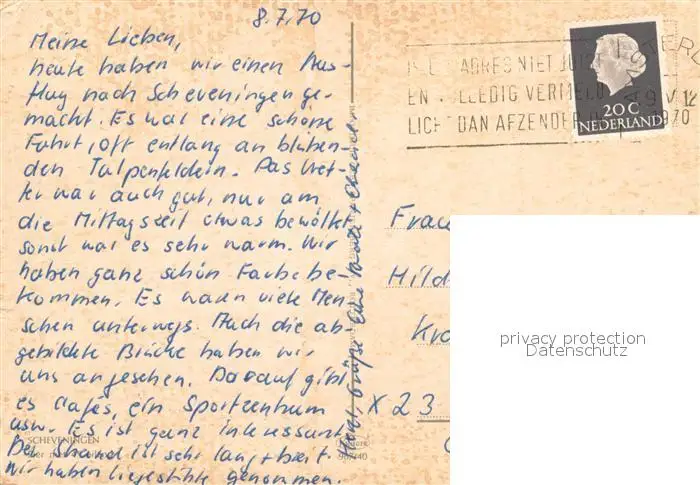 8.7.70
Meine Lieben,
heute haben wir einen Aus-
flug nach Scheveningen ge-
macht. Es war eine schöne
Fahrt, oft entlang an blühen-
den Tulpenfeldern. Das Wet-
ter war auch gut, nur am
die Mittagszeit etwas bewölkt
sonst war es sehr warm. Wir
haben ganz schön Farbe be-
kommen. Es waren viele Men-
schen unterwegs. Auch die ab-
gebildete Brücke haben wir
uns angesehen. Darauf gibt
es Cafés, ein Sportzentrum
usw. Es ist ganz interessant
Der Strand ist sehr lang + breit.
Wir haben Liegestühle genommen.
Herzl. Grüße Eure
SCHEVENINGEN
ADRES NIET JUIST
EN VOLLEDIG VERMELD
LICHT DAN AFZENDER
9 V 12
1970
20 C
NEDERLAND
Frau
Hild
Kro
X 23
privacy protection
Datenschutz